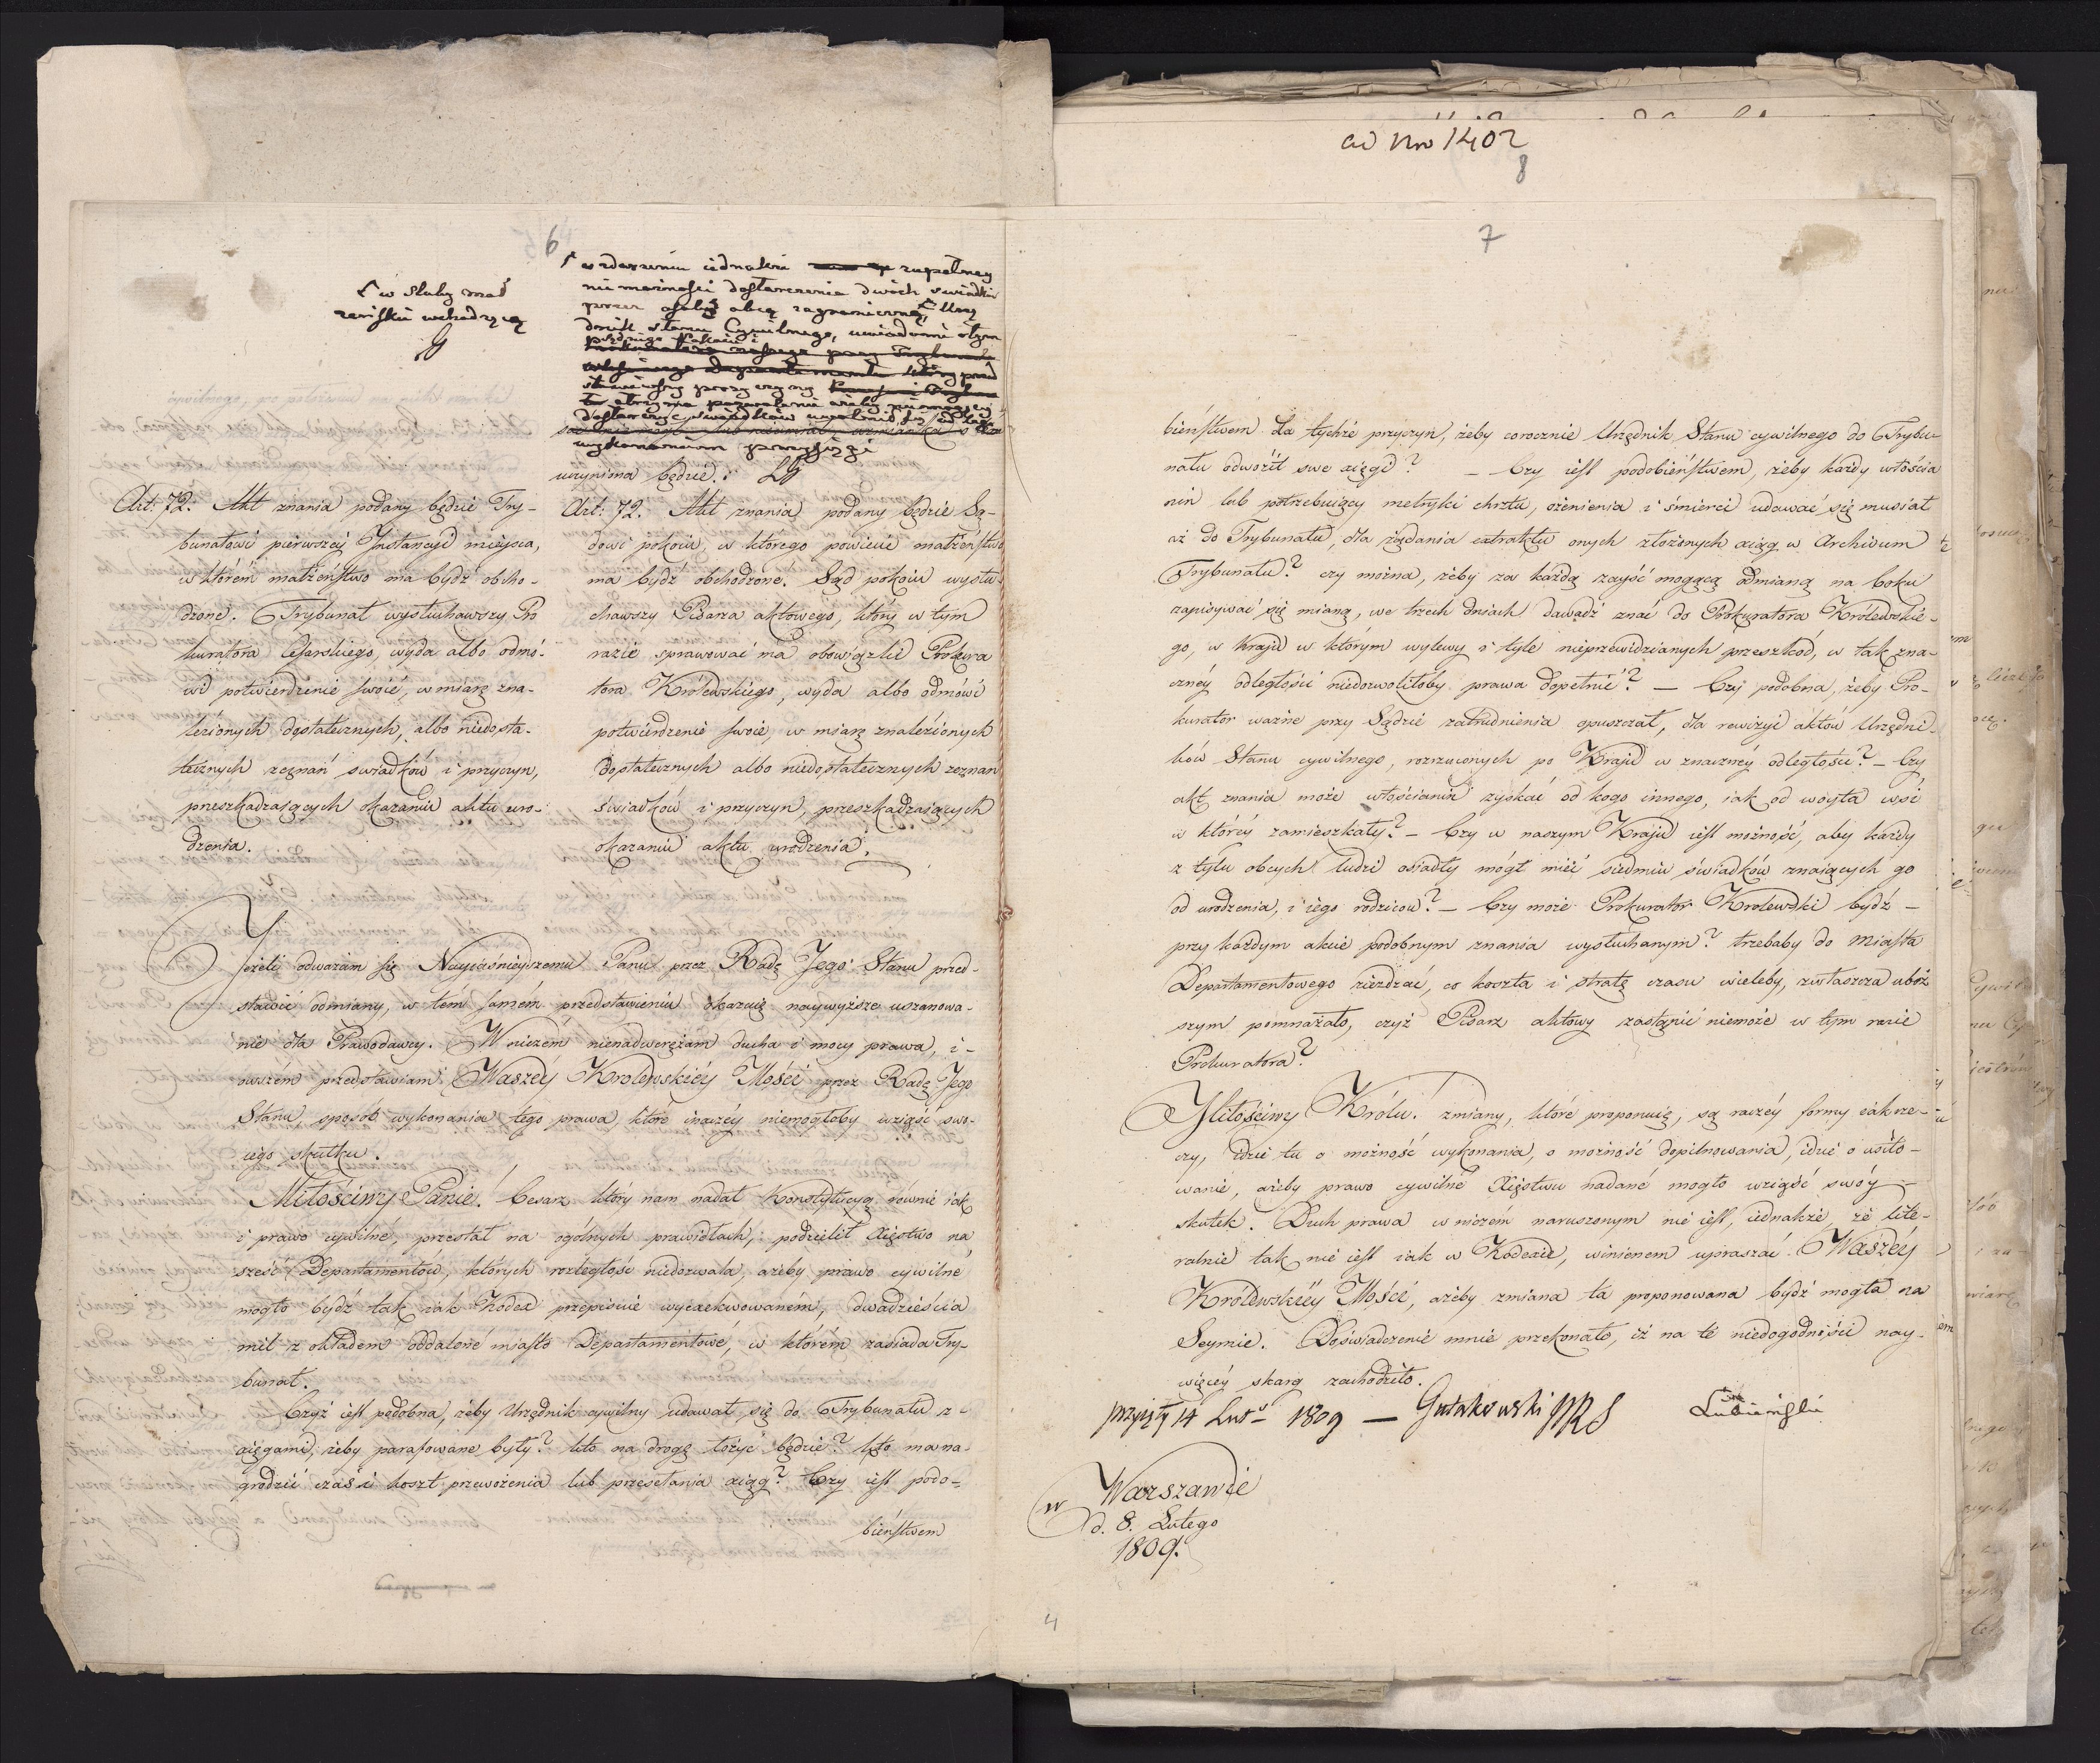 6
Ł w Śluby mał
żeńskie wchodzącą
w zdarzeniu iednakże zupełney
nie możności dostarczenia dwóch swiadków
przez osobę obcą zagraniczną Urzę
dnik stanu Cywilnego, uwiadomi o tym
dostarczyć swiadków
wykonaniem przysięgi
uczyniona będzie.
Art: 72. Akt znania podany będzie Try-
bunałowi pierwszej Instancyi mieysca,
w którém małżeństwo ma bydź obcho-
dzone. Trybunał wysłuchawszy Pro
kuratora Cesarskiego, wyda albo odmó-
wi potwierdzenie swoie, w miarę zna-
lezionych dostatecznych, albo niedosta-
tecznych zeznań swiadków i przyczyn,
przeszkadzaiących okazaniu aktu uro-
dzenia.
Art: 72. Akt znania podany będzie Są-
dowi pokoiu, w którego powiecie małżeństwo
ma bydź obchodzone. Sąd pokoiu wysłu-
chawszy Pisarza aktowego, który w tym
razie sprawować ma obowiązki Prokura
tora Królewskiego, wyda albo odmówi
potwierdzenie swoie, w miarę znalezionych
dostatecznych albo niedostatecznych zeznań
świadków i przyczyn, przeszkadzaiących
okazaniu aktu urodzenia.
Jeżeli odważam się Nayiaśnieyszemu Panu przez Radę Jego Stanu przed-
stawić odmiany, w tém samém przedstawieniu okazuię naywyższe uszanowa-
nie dla Prawodawcy. W niczém nienadweręzam ducha i mocy prawa, i-
owszém przedstawiam Waszéy Krolewskiéy Mości przez Radę Jego
Stanu, sposób wykonania tego prawa, które inaczéy niemogłoby wziąść swo-
iego skutku.
Miłościwy Panie! Cesarz który nam nadał Konstytucyą równie iak
i prawo cywilne, przestał na ogólnych prawidłach, podzielił Xięstwo na
sześć Departamentów, których rozległość niedozwala, ażeby prawo cywilne
mogło bydź tak iak Kodex przepisuie wyexekwowaném, dwadzieścia
mil z okładem oddalone miasto Departamentowe, w którém zasiada Try-
bunał.
Czyż iest podobna, żeby Urzędnik cywilny udawał się do Trybunału z-
xięgami, żeby parafowane były? kto na drogę łożyć będzie? kto ma na-
grodzić czas i koszt przewożenia lub przesełania xiąg? Czy iest podo-
bieństwem
ad Nro 1402
8
7
bieństwem dla tychże przyczyn, żeby corocznie Urzędnik Stanu cywilnego do Trybu-
nału odwoził swe xięgi? – Czy iest podobieństwem, żeby każdy włościa
nin lub potrzebuiący metryki chrztu, ożenienia i śmierci udawać się musiał
aż do Trybunału, dla żądania extraktu onych złożonych xiąg w Archivum
Trybunału? czy można, żeby za każdą zayść mogącą odmianą na boku
zapisywać się mianą, we trzech dniach dawadź znać do Prokuratora Królewskie-
go, w kraju w którym wylewy i tyle nieprzewidzianych przeszkód, w tak zna-
cznéy odległości niedozwoliłoby prawa dopełnić? – Czy podobna, żeby Pro-
kurator ważne przy Sądzie zatrudnienia opuszczał, dla rewizyi aktów Urzędni-
ków Stanu cywilnego, rozrzuconych po Kraju w znacznéy odległości? – Czy
akt znania może włościanin zyskać od kogo innego, iak od woyta wsi
w któréy zamieszkały? – Czy w naszym Kraju iest możność, aby każdy
z tylu obcych ludzi osiadły mógł mieć siedmiu świadków znaiących go
od urodzenia, i iego rodziców? – Czy może Prokurator Krolewski bydź –
przy każdym akcie podobnym znania wysłuchanym? trzebaby do Miasta
Departamentowego ziezdzać, co koszta i stratę czasu wieleby, zwłaszcza uboż
szym pomnażało, czyż Pisarz aktowy zastąpić niemoże w tym razie
Prokuratora?
Miłościwy Królu! zmiany, które proponuię, są raczéy formy iak rze-
czy, idzie tu o możność wykonania, o możność dopilnowania, idzie o usiło-
wanie, ażeby prawo cywilne Xięstwu nadane mogło wziąść swóy –
skutek. Duch prawa w niczém naruszonym nie iest, iednakże, że lite-
ralnie tak nie iest iak w Kodexie, winienem upraszać Waszéy
Królewskiéy Mości, ażeby zmiana ta proponowana bydź mogła na
Seymie. Doświadczenie mnie przekonało, iż na te niedogodności nay-
więcéy skarg zachodziło.
przyięty 14 Lut° 1809 — Gutakowski PRS
Łubieński
w Warszawie
d. 8. Lutego
1809.
4